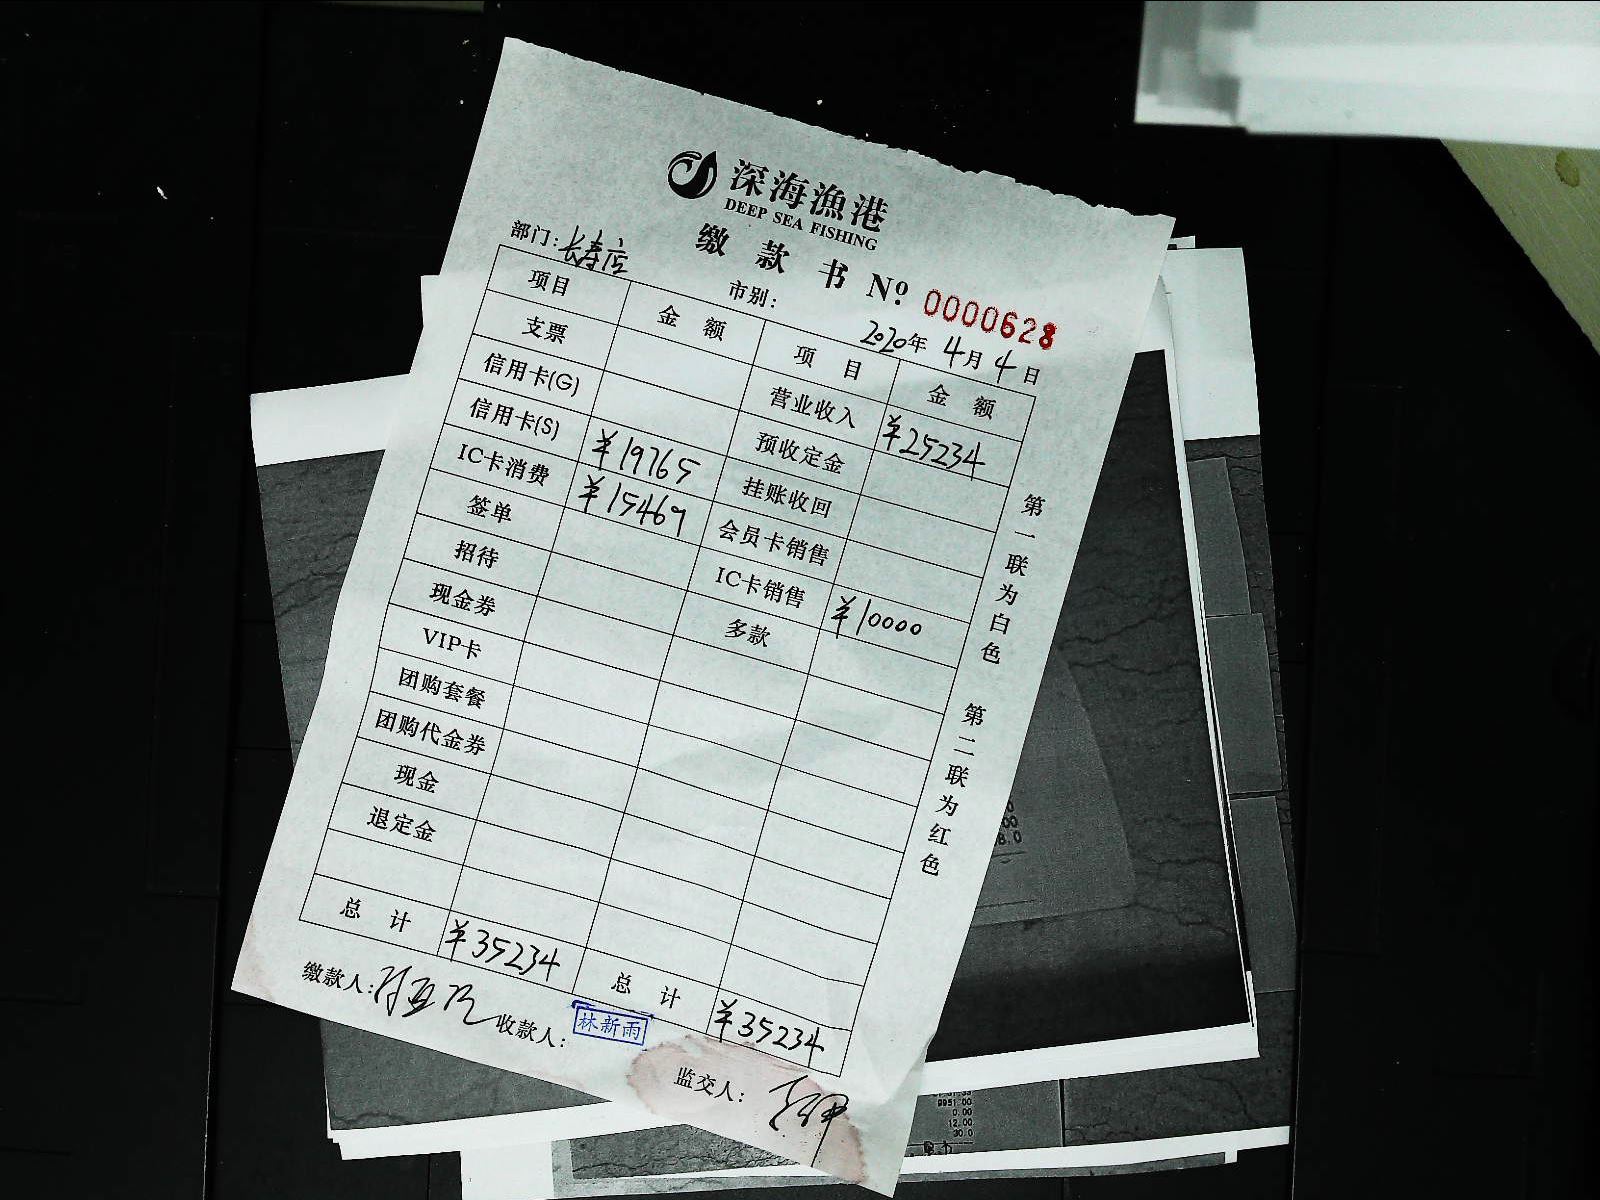 深海渔港
DEEP SEA FISHING
缴款书 Nº 0000628
部门:长寿店 市别: 2020年4月4日
项目 金额 项目 金额
支票 营业收入 ¥25234
信用卡(G) 预收定金
信用卡(S) ¥19765 挂账收回
IC卡消费 ¥15469 会员卡销售
签单 IC卡销售 ¥10000
招待 多款
现金券
VIP卡
团购套餐
团购代金券
现金
退定金
总计 ¥35234 总计 ¥35234
缴款人: 收款人: 林新雨
监交人:
第一联为白色
第二联为红色
9951.00
0.00
12.00
30.0